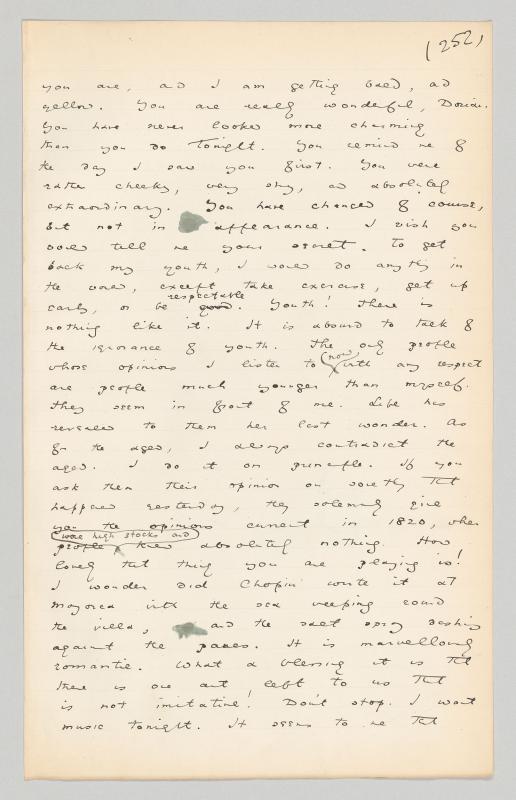 (252)
you are, and I am getting bald, and
yellow. You are really wonderful, Dorian.
You have never looked more charming
than you do Tonight. You remind me of
the day I saw you first. You were
rather cheeky, very shy, and absolutely
extraordinary. You have changed of course,
but not in appearance. I wish you
would tell me your secret. To get
back my youth, I would do anything in
the world, except take exercise, get up
respectable
early, or be good. Youth! There is
nothing like it. It is absurd to talk of
the ignorance of youth. The only people
now
whose opinions I listen to with any respect
are people much younger than myself.
They seem in front of me. Life has
revealed to them her last wonder. As
for the aged, I always contradict the
aged. I do it on principle. If you
ask them their opinion on something that
happened yesterday, they solemnly give
you the opinions current in 1820, when
wore high stocks and
people knew absolutely nothing. How
lovely that thing you are playing is!
I wonder did Chopin write it at
Majorca with the sea weeping round
the villa, and the salt spray dashing
against the panes. It is marvellously
romantic. What a blessing it is that
there is one art left to us that
is not imitative! Don't stop. I want
music tonight. It seems to me that